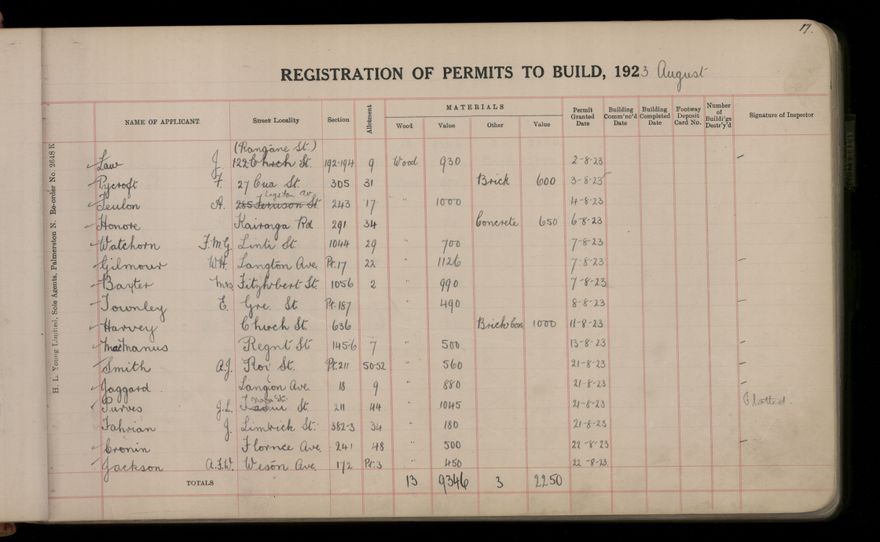 17.
REGISTRATION OF PERMITS TO BUILD, 1923 August
NAME OF APPLICANT Street Locality Section Allotment MATERIALS Wood Value Other Value Permit Granted Date Building Comm'nc'd Date Building Completed Date Footway Deposit Card No. Number of Build'gs Destr'y'd Signature of Inspector
(Rangane St.)
Law J. 122 Church St. 192-194 9 Wood 930 2-8-23
Pycroft F. 27 Cua St. 305 31 Brick 600 3-8-23
Langston Av.
Teulon A. 285 Ferguson St 243 17 " 1000 4-8-23
Honore Kairanga Rd 291 34 Concrete 650 6-8-23
Watchorn F.M.G. Linton St 1044 29 " 700 7-8-23
Gilmour W.H. Langton Ave. Pt.17 22 " 1126 7-8-23
Baxter Mrs Fitzherbert St 1056 2 " 990 7-8-23
Townley E. Grey St Pt.187 " 490 8-8-23
Harvey Church St 636 Brick & Con 1000 11-8-23
MacManus Regnt St 1456 7 " 500 13-8-23
Smith A.J. Roy St. Pt.211 50-52 " 560 21-8-23
Jaggard Langton Ave. 18 9 " 880 21-8-23
Purves J.L. St. 211 44 " 1045 21-8-23 Plotted.
Fahrian J. Limrick St. 382-3 34 " 180 21-8-23
Cronin Flornce Ave. 241 48 " 500 22-8-23
Jackson A.F.W. Weson Ave. 172 Pt.3 " 450 22-8-23
TOTALS 13 9346 3 2250
H. L. Young Limited, Sole Agents, Palmerston N. Re-order No. 2648 K